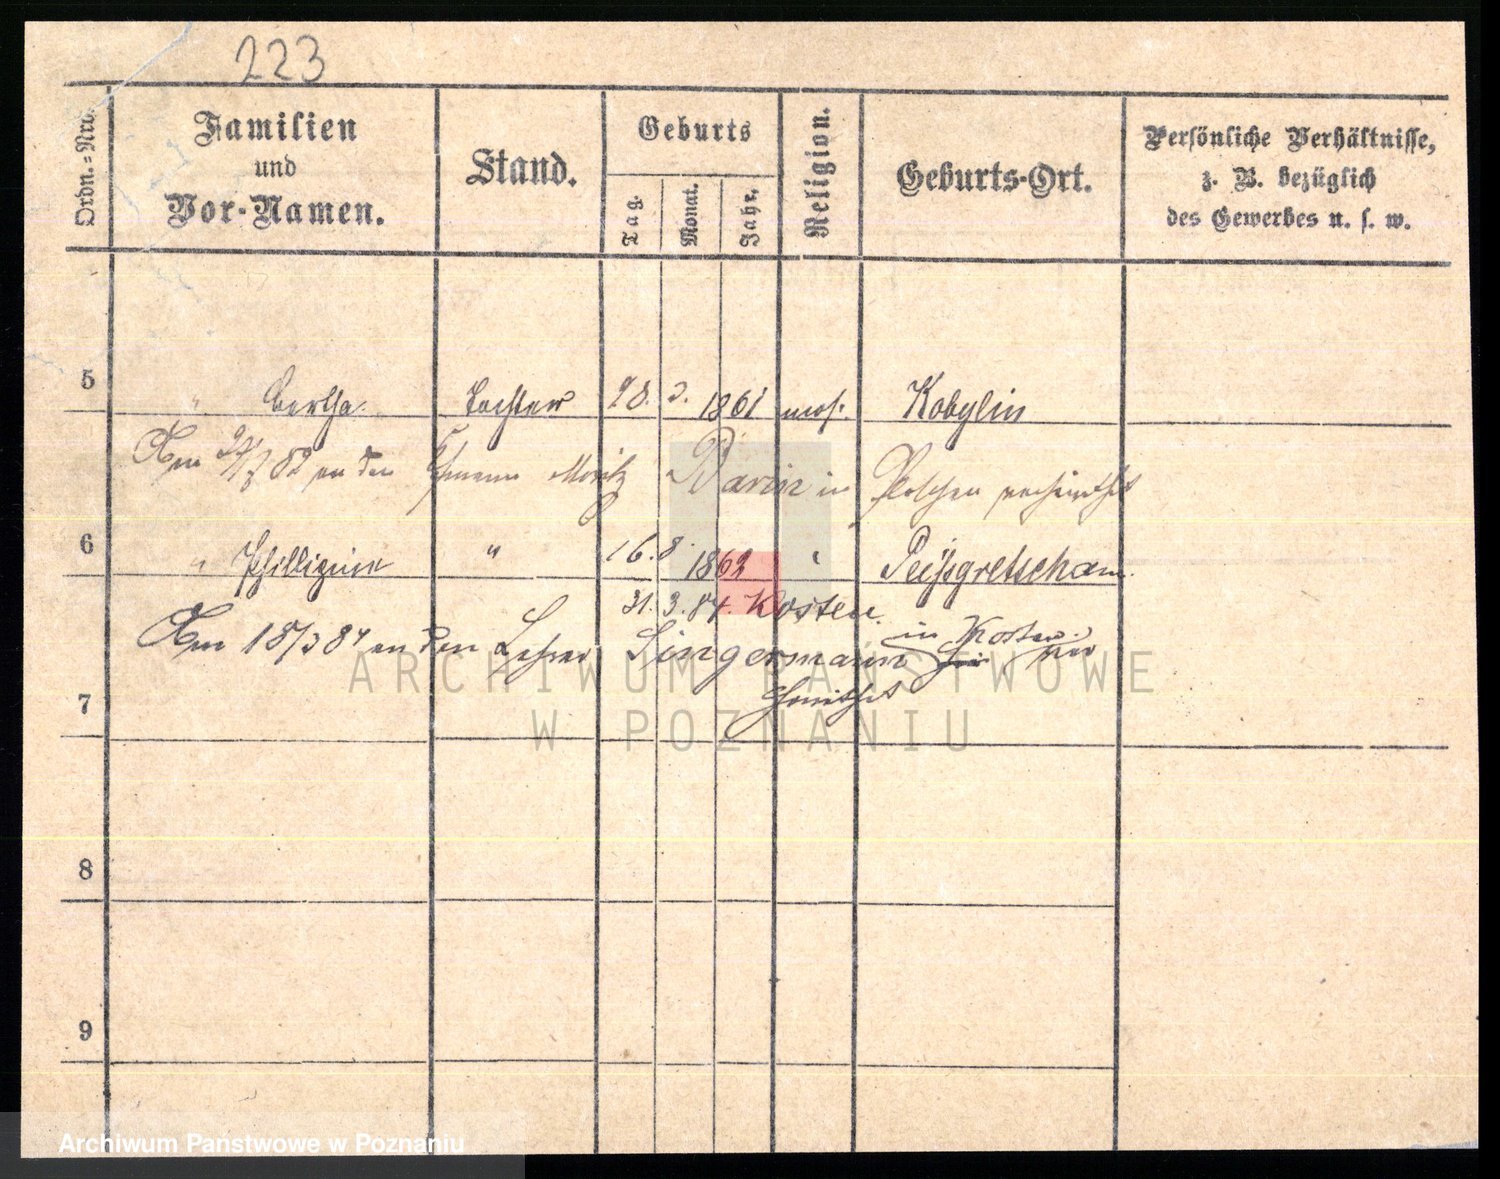 223
Ordn.=Nro. Familien und Vor-Namen. Stand. Geburts Tag. Monat. Jahr. Religion. Geburts-Ort. Persönliche Verhältnisse, z. B. bezüglich des Gewerbes u. s. w.
5 " Bertha Tochter 28. 2. 1861 mos. Kobylin
Am an den Moritz in verheirathet
6 " Phillipine " 16. 8. 1862 " Peißgretscham
31. 3. 84. Kosten.
Am 18/3 84 an den Lehrer Singermann in Kosten ver
7 heirathet
8
9
ARCHIWUM PAŃSTWOWE
W POZNANIU
Archiwum Państwowe w Poznaniu